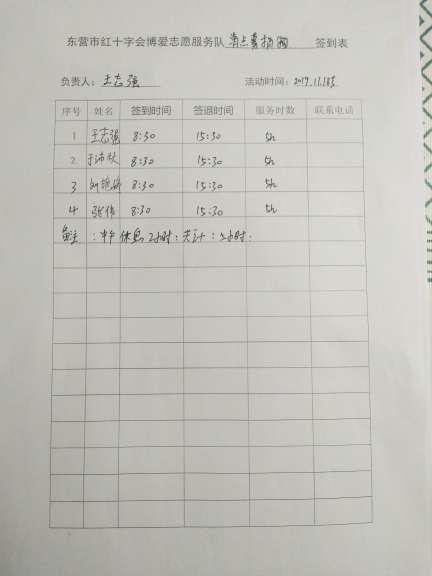 东营市红十字会博爱志愿服务队 签到表
负责人：王志强 活动时间：2017.11.18
序号 姓名 签到时间 签退时间 服务时数 联系电话
1 王志强 8:30 15:30 5h
2. 于沛秋 8:30 15:30 5h
3 8:30 15:30 5h
4 张伟 8:30 15:30 5h
备注：中午休息2小时；共计：5小时.